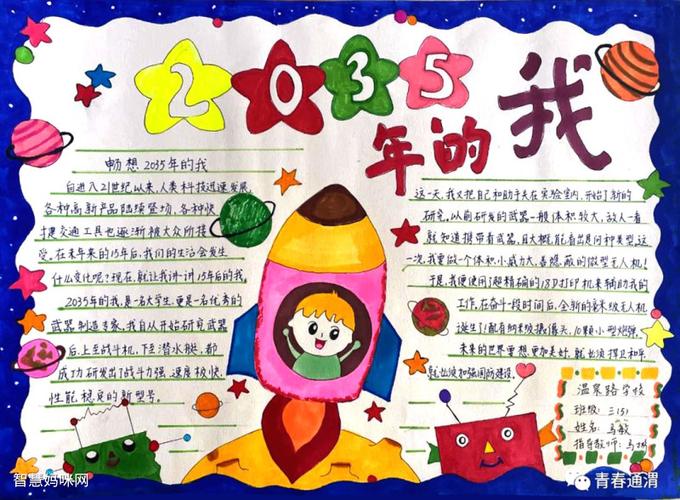 2035
年的我
畅想2035年的我
自进入21世纪以来,人类科技迅速发展,
各种高新产品陆续登场,各种快
捷交通工具也逐渐被大众所接
受。在未来的15年后,我们的生活会发生
什么变化呢?现在,就让我讲讲15年后的我。
2035年的我,是一名大学生,更是一名优秀的
武器制造专家,我自从开始研究武器
后,上至战斗机,下至潜水艇,都
成功研发出了战斗力强,速度极快,
性能稳定的新型号。
这一天,我又把自己和助手关在实验室内,开始了新的
研究,以前研发的武器一般体积较大,敌人一看
就知道携带着武器,且大概能看出是何种类型,这
一次,我要做一个体积小威力大,善隐蔽的微型无人机!
于是,我便使用了超精确的18D打印机来辅助我的
工作,在奋斗一段时间后,全新的毫米级无人机
诞生了!配有纳米级摄像头,10颗小型炮弹。
未来的世界要想更加美好,就必须捍卫和平,
就必须加强国防建设。
温泉路学校
班级:三(5)
姓名:马敏
指导教师:马
智慧妈咪网
青春通渭